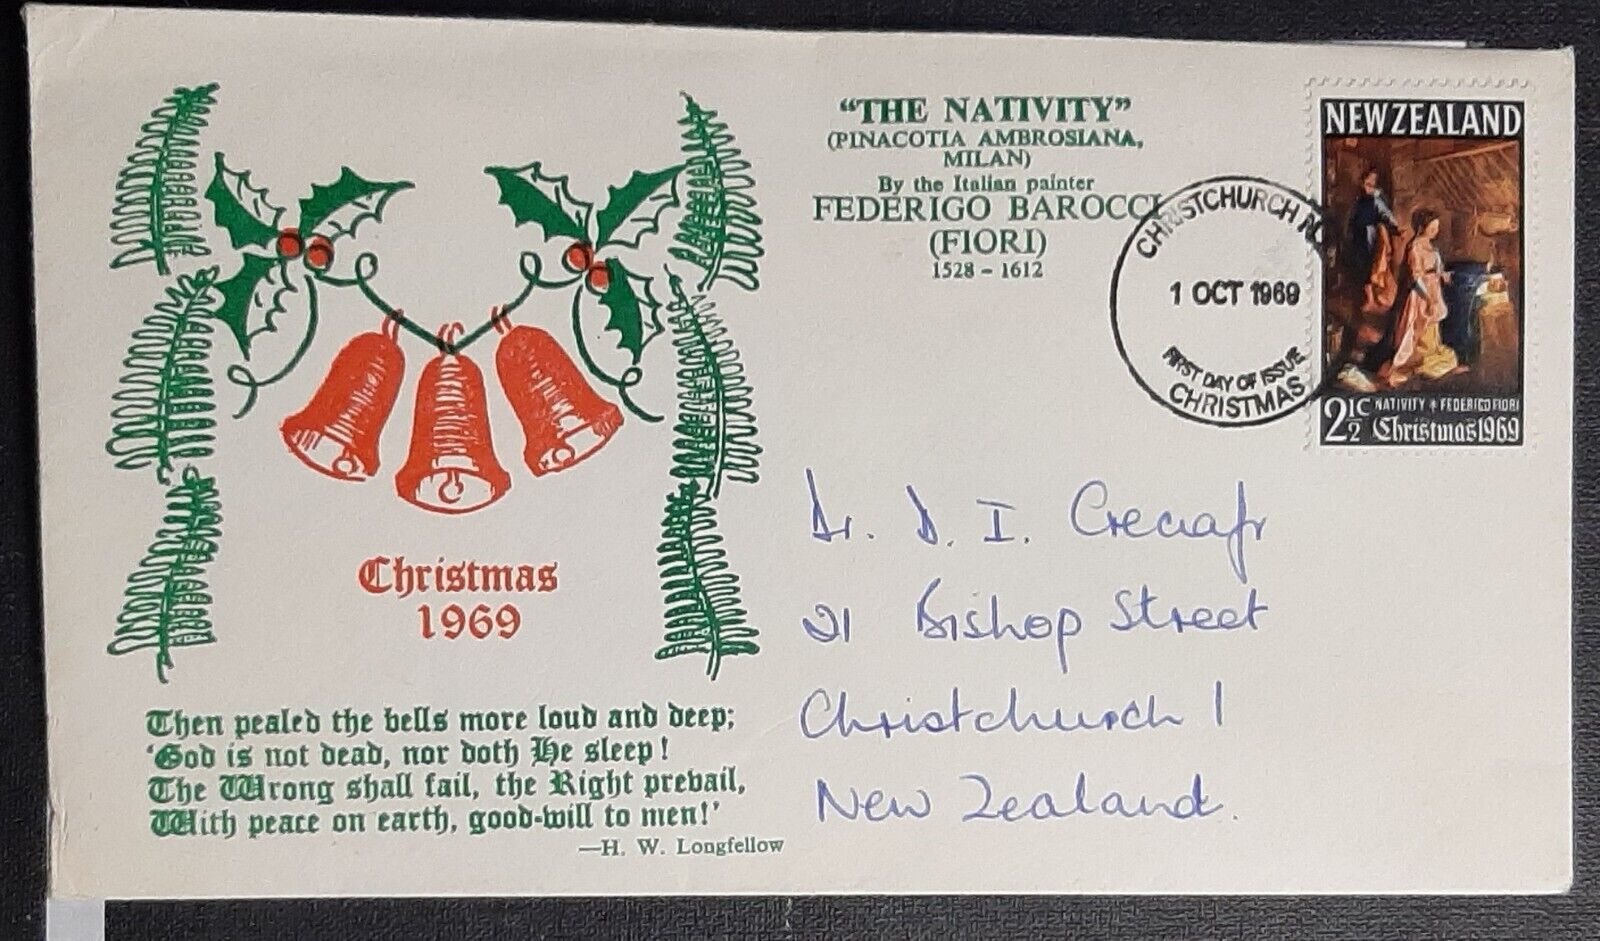 "THE NATIVITY"
(PINACOTIA AMBROSIANA,
MILAN)
By the Italian painter
FEDERIGO BAROCCI
(FIORI)
1528 - 1612
CHRISTCHURCH
1 OCT 1969
FIRST DAY OF ISSUE
CHRISTMAS
NEW ZEALAND
2½c NATIVITY FEDERIGO FIORI
Christmas 1969
Christmas
1969
Then pealed the bells more loud and deep;
'God is not dead, nor doth He sleep!
The Wrong shall fail, the Right prevail,
With peace on earth, good-will to men!'
—H. W. Longfellow
Dr. D. I.
21 Bishop Street
Christchurch 1
New Zealand.